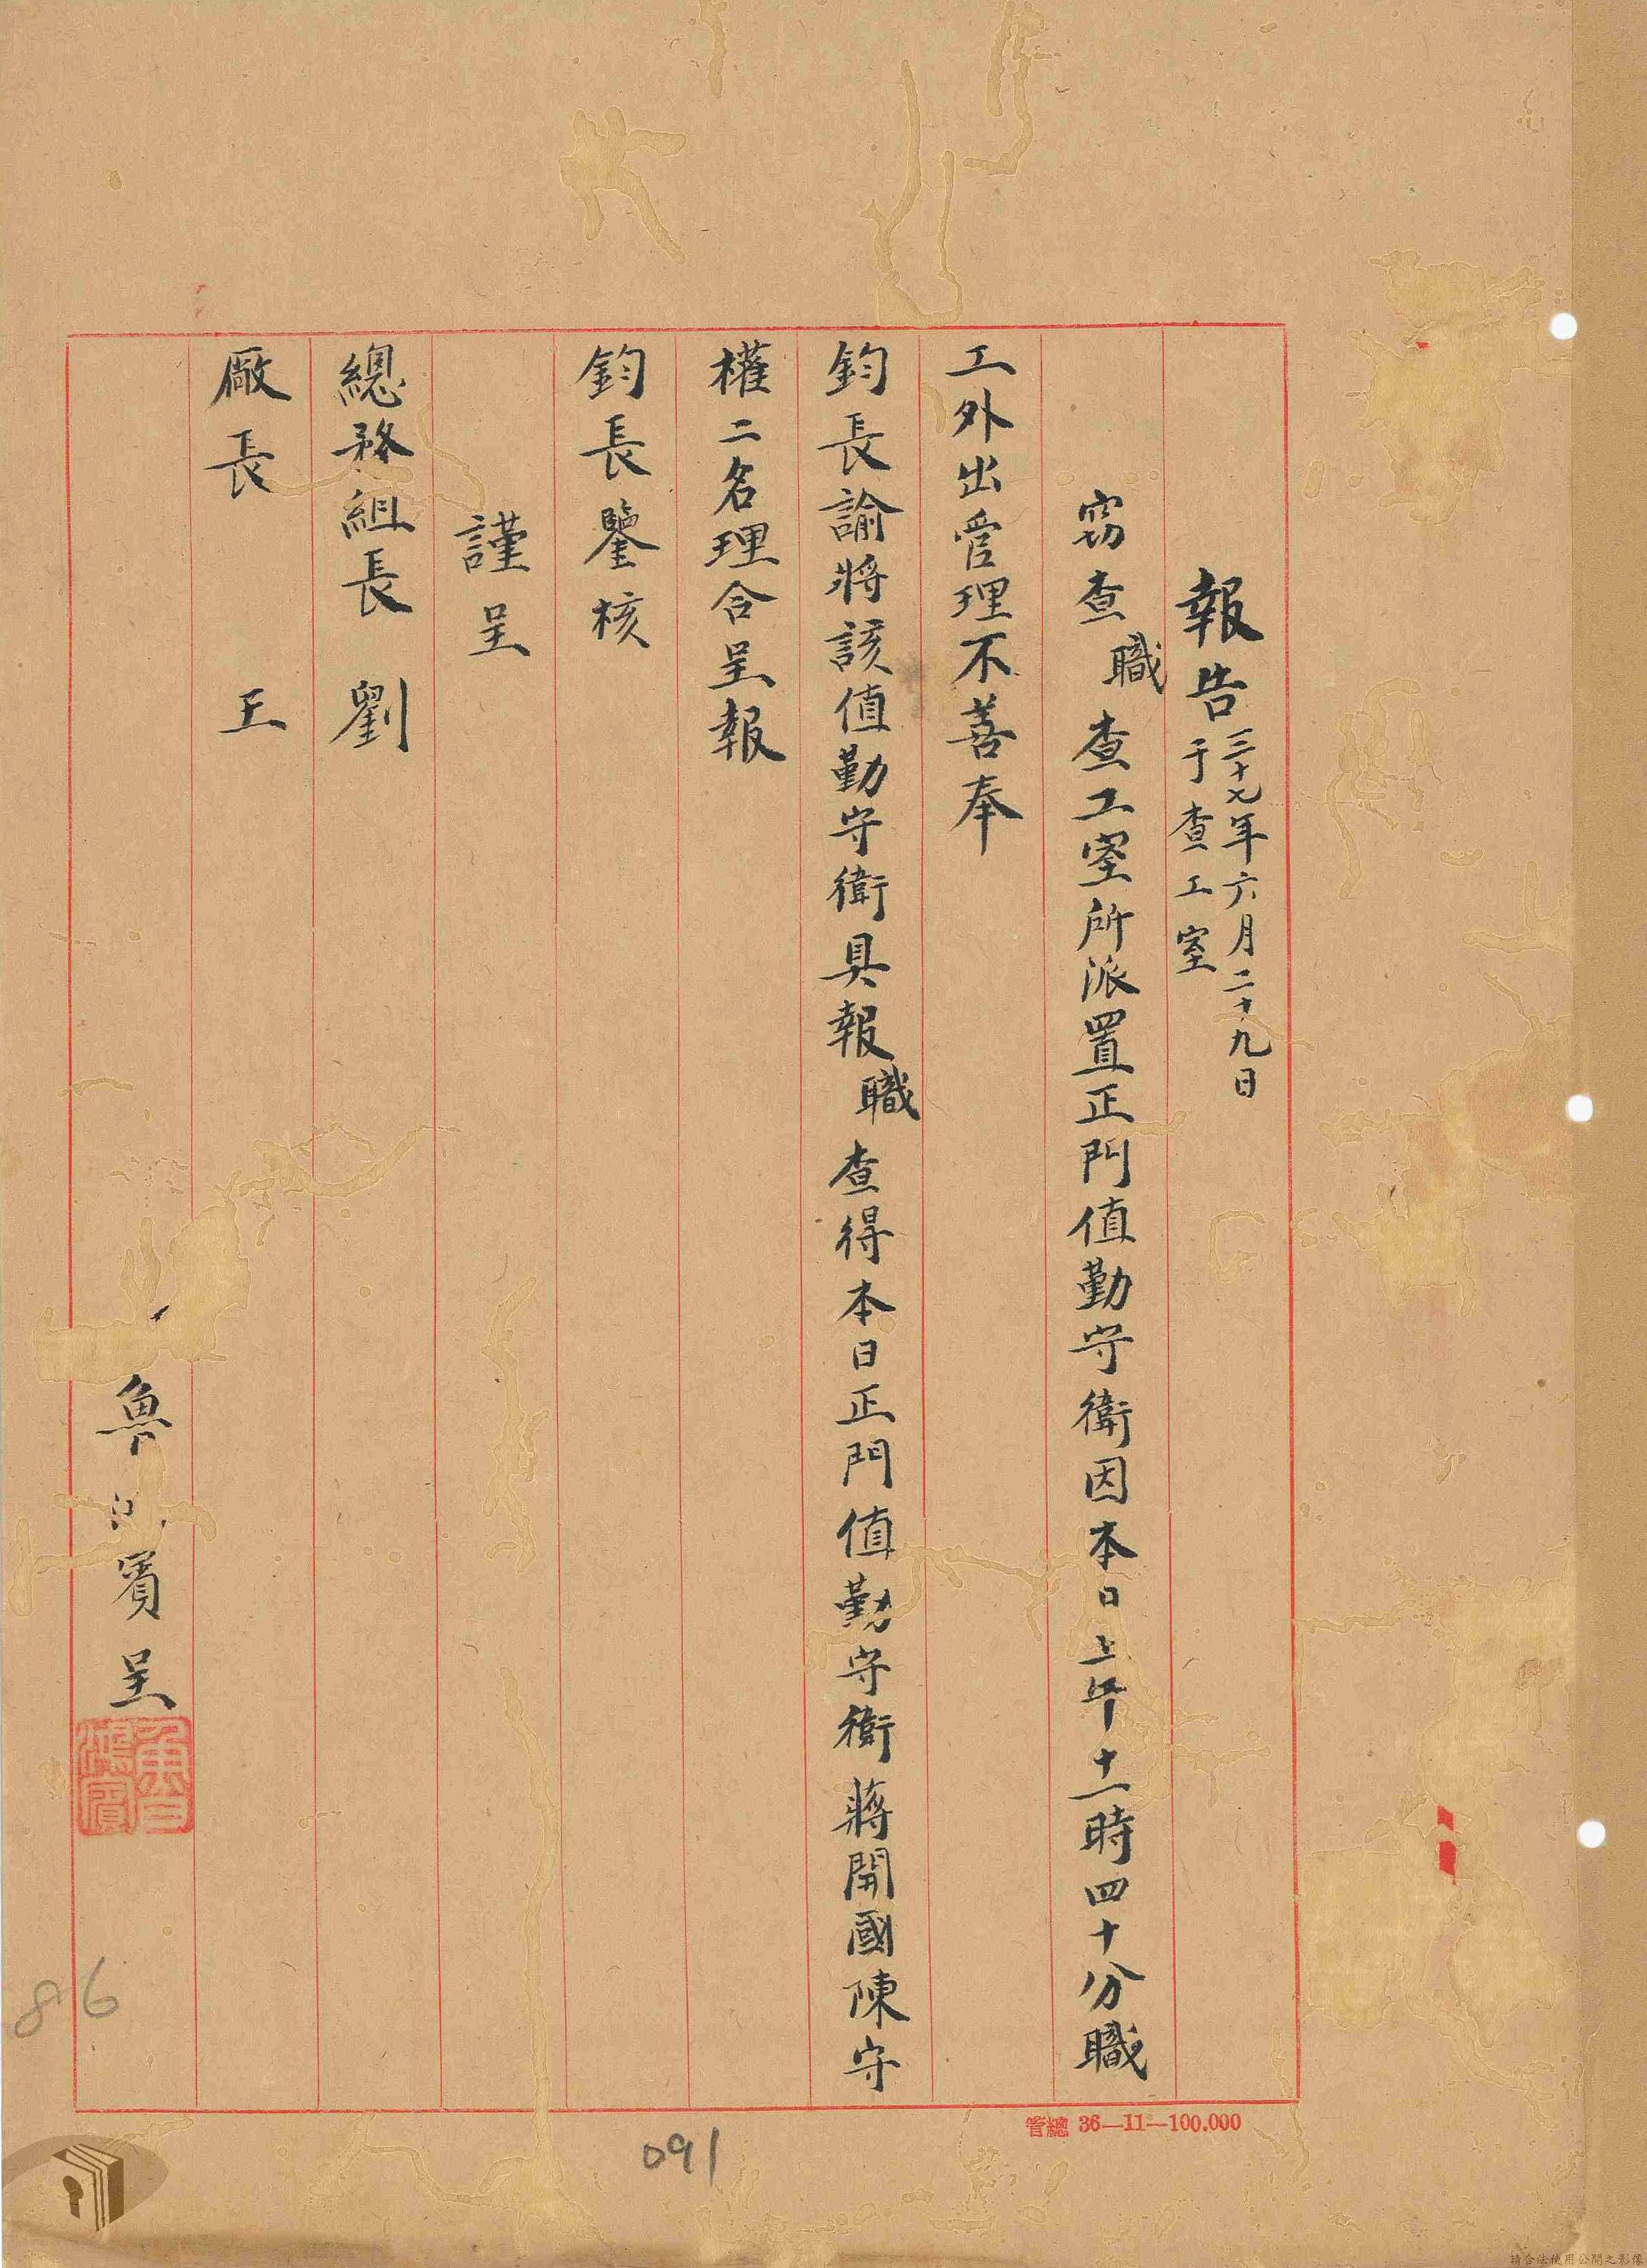 報告
三十七年六月二十九日
于查工室
窃查職查工室所派置正門值勤守衛因本日上午十一時四十分職
工外出管理不善奉
鈞長諭將該值勤守衛具報職查得本日正門值勤守衛蔣開國陳守
權二名理合呈報
鈞長鑒核
謹呈
總務組長 劉
廠長 王
魯 賓呈
魯鴻賓
管總 36—11—100.000
86
091
請合法使用公開之影像